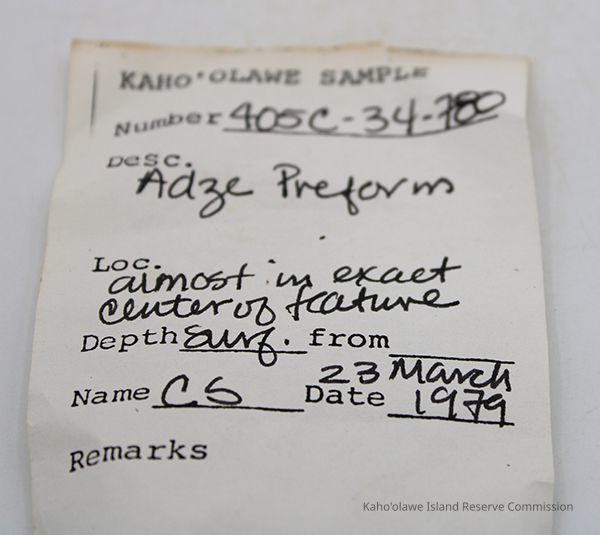 KAHO'OLAWE SAMPLE
Number 405C-34-780
Desc.
Adze Preform
Loc.
almost in exact
center of feature
Depth surf. from
Name CS Date 23 March
1979
Remarks
Kaho'olawe Island Reserve Commission